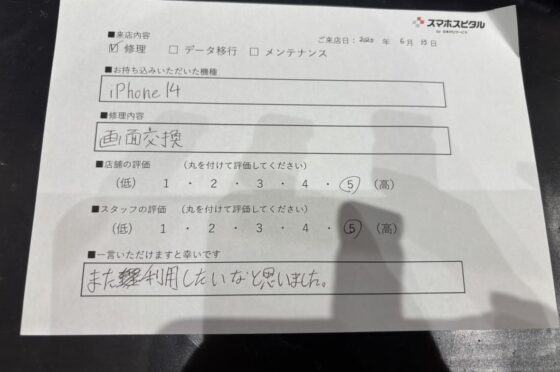 スマホスピタル
ご来店日：2025 年 6 月 15 日
■来店内容
☑ 修理 □ データ移行 □ メンテナンス
■お持ち込みいただいた機種
iPhone14
■修理内容
画面交換
■店舗の評価 （丸を付けて評価してください）
（低） 1 ・ 2 ・ 3 ・ 4 ・ 5 （高）
■スタッフの評価 （丸を付けて評価してください）
（低） 1 ・ 2 ・ 3 ・ 4 ・ 5 （高）
■一言いただけますと幸いです
また利用したいなと思いました。